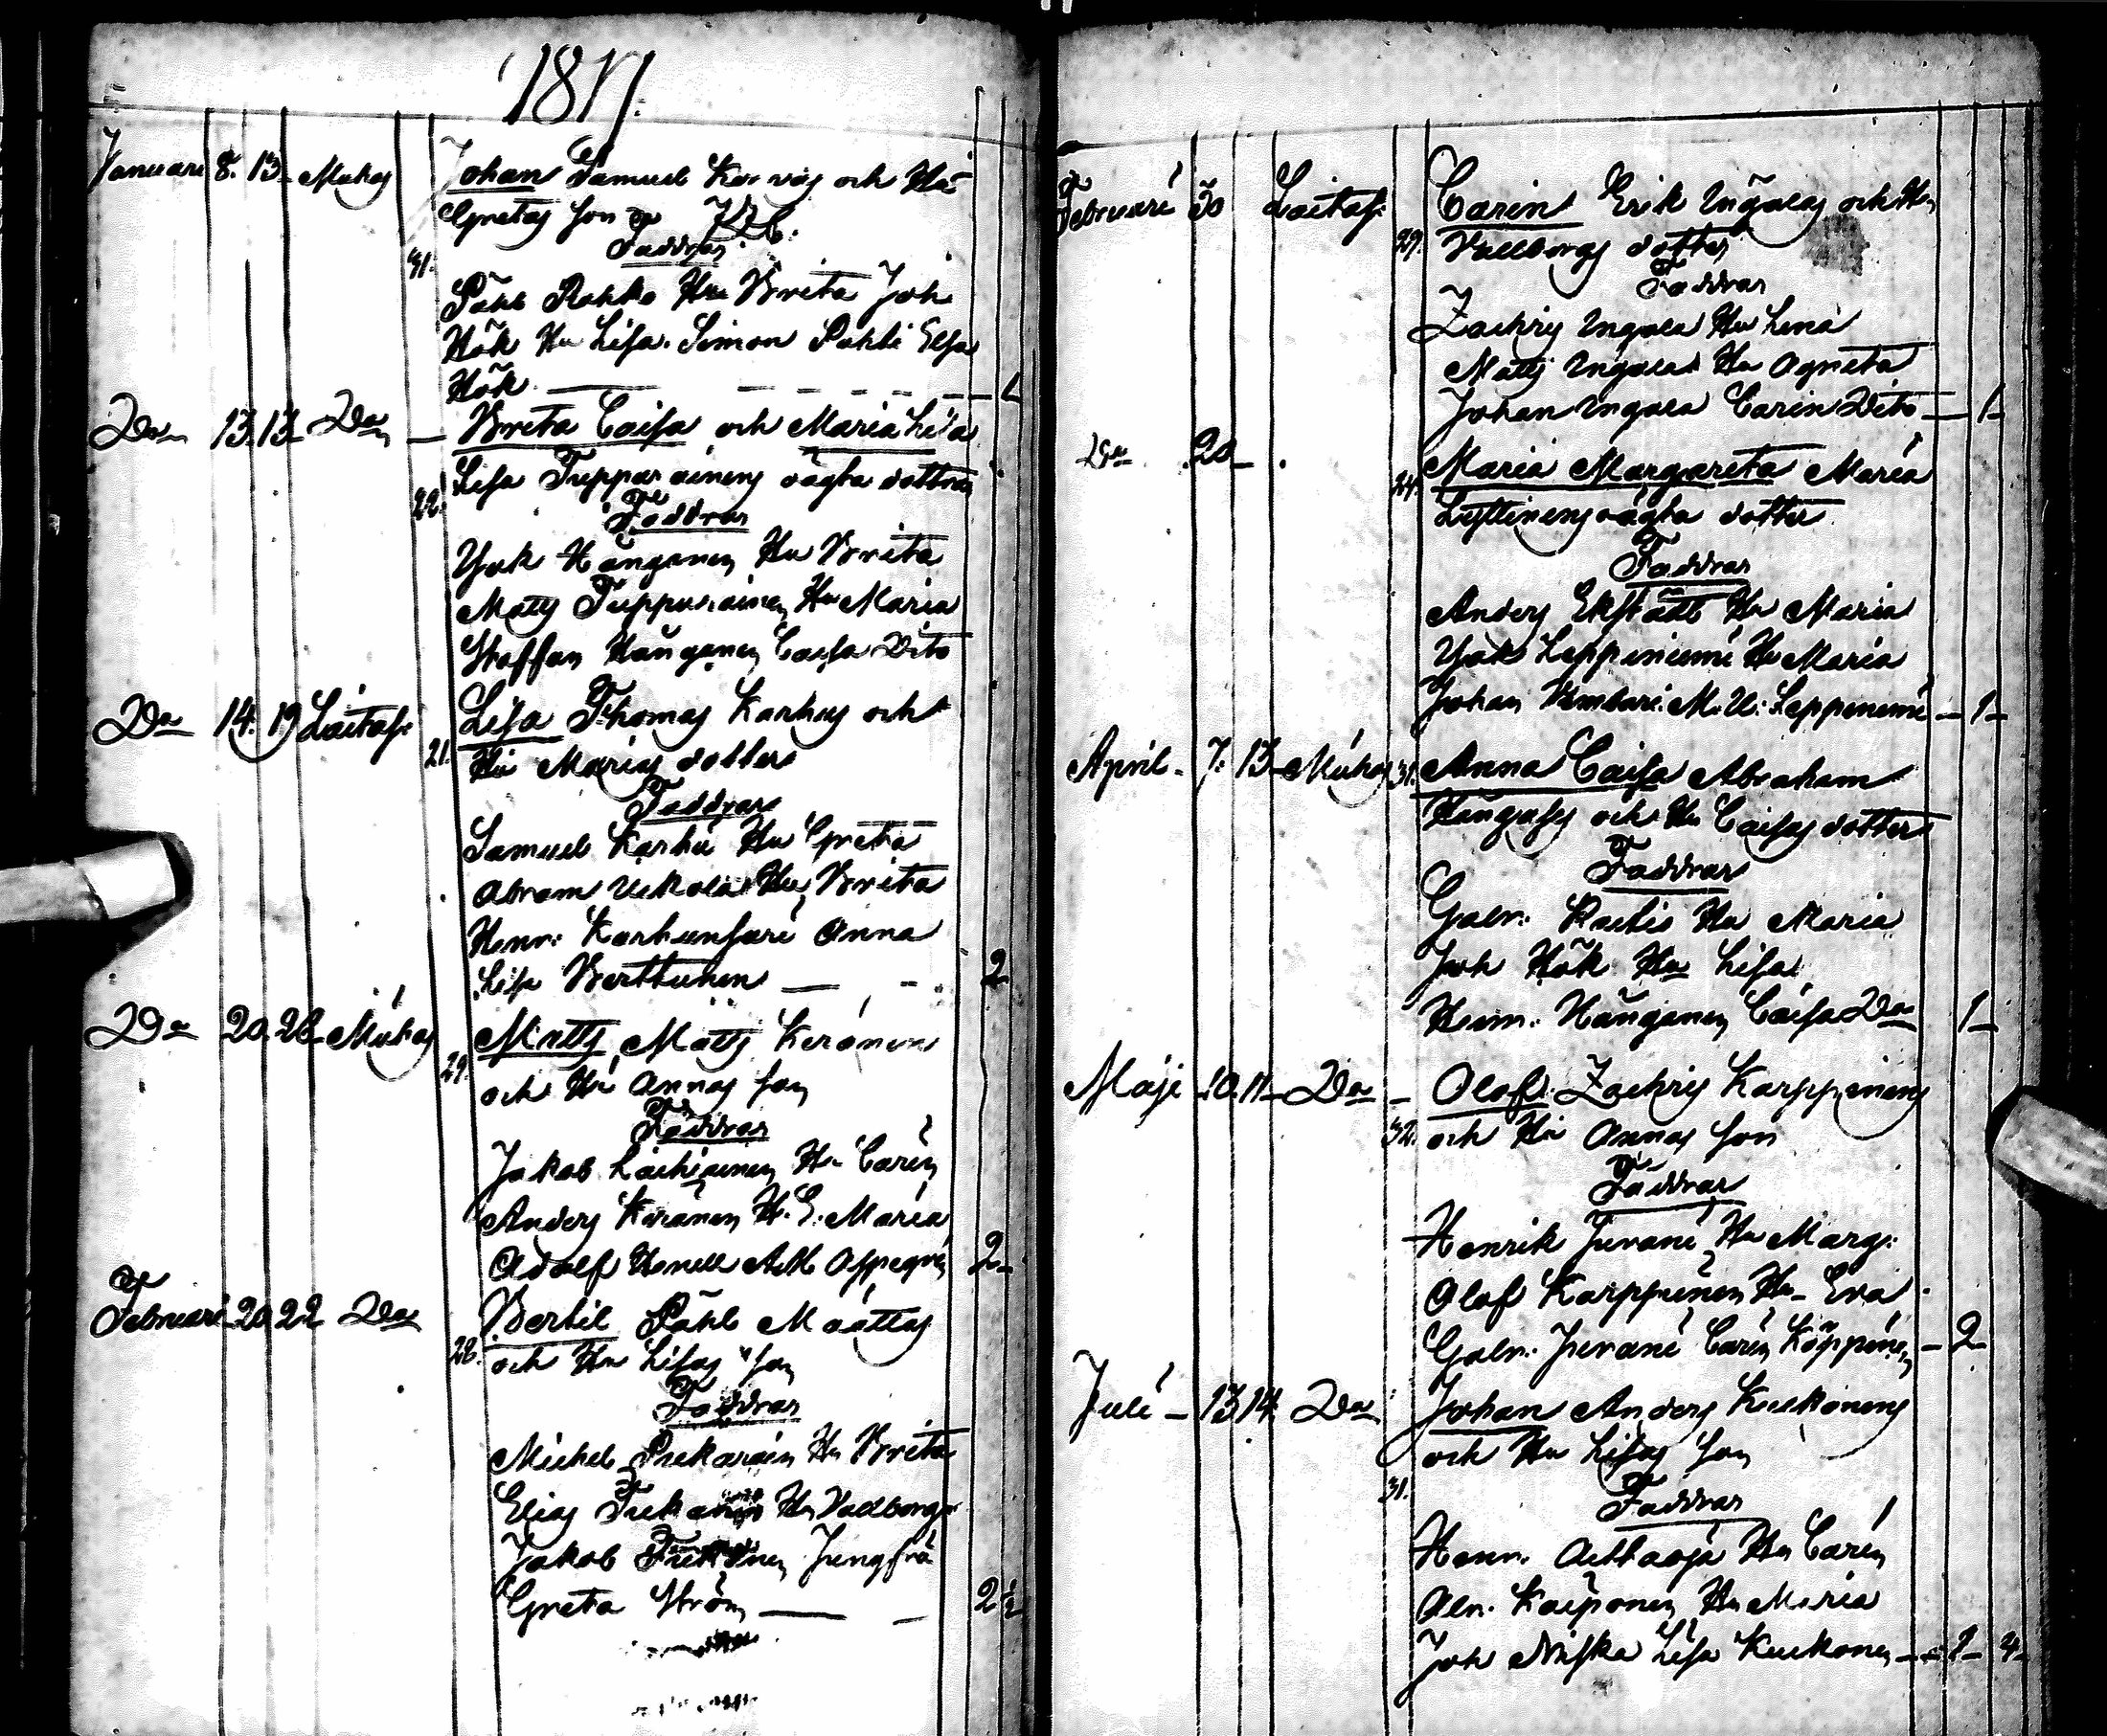 1817.
Januari 8. 13. Muhos Johan Samuel och Hu
Gretas son
Faddrar
31.
Påhl Hu Brita Joh
Hök Hu Lisa. Simon Elsa
Hök 1
Do 13. 13 Do Brita Caisa och Maria Lisa
22. Lisa Tuppurainens oägta döttrar
Faddrar
Hånganen Hu Brita
Matts Tuppurainen Hu Maria
Staffan Hånganen Caisa Dito
Do 14. 19 Laitas: Lisa Thomas Karhus och
21. Hu Marias dotter
Faddrar
Samuel Karhu Hu Greta
Abram Ukkola Hu Brita
Henr: Karhunsari Anna
Lisa Berttunen 2
Do 20. 26 Muhos Matts Matts Keränens
29. och Hu Annas son
Faddrar
Jakob Hu Carin
Anders Keränen H. E. Maria
Adolf 2
Februari 20 22 Do Bertil Påhl Määttas
28. och Hu Lisas son
Faddrar
Michel Hu Brita
Elias Hu Vallborg
Jakob Jungfru
Greta Ström 2½
Februari 20 Laitas: Carin Erik Ingalas och Hu
29. Vallborgs dotter
Faddrar
Zachris Ingala Hu Lena
Matts Ingala Hu Agneta
Johan Ingala Carin Dito 1
Do 20 Maria Margareta Maria
24. oägta dotter
Faddrar
Anders Hu Maria
Leppiniemi Hu Maria
Johan M. U: Leppiniemi 1
April 7. 13 Muhos 31. Anna Caisa Abraham
och Hu Caisas dotter
Faddrar
Gabr: Hu Maria
Joh Hök Hu Lisa
Hånganen Caisa Do 1
Maji 10. 11 Do Olof Zachris Karppinens
32. och Hu Annas son
Faddrar
Henrik Juvani Hu Marg:
Olof Karppinen Hu Eva
Gabr: Juvani Carin 2
Juli 13 14 Do Johan Anders Kukkonens
och Hu Lisas son
31.
Faddrar
Henr: Hu Carin
Hu Maria
Joh Niska Lisa Kukkonen 2 4